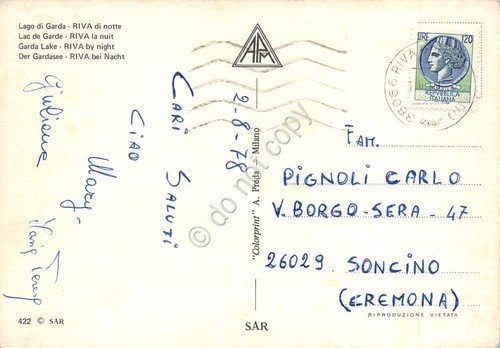 Lago di Garda - RIVA di notte
Lac de Garde - RIVA la nuit
Garda Lake - RIVA by night
Der Gardasee - RIVA bei Nacht
2-8-78
CARI SALUTI
CIAO
Giuliana
Mary
422 © SAR
"Colorprint" A. Preda - Milano
SAR
LIRE 120
REPUBBLICA
ITALIANA
38066 RIVA
FAM.
PIGNOLI CARLO
V. BORGO-SERA - 47
26029 SONCINO
(CREMONA)
RIPRODUZIONE VIETATA
do not copy